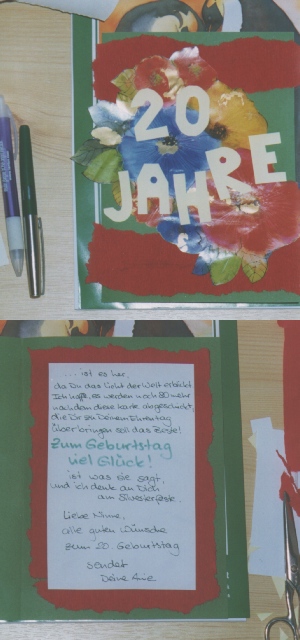 20
JAHRE
... ist es her,
da Du das Licht der Welt erblickt
Ich hoffe, es werden noch 80 mehr
nachdem diese Karte abgeschickt,
die Dir zu Deinem Ehrentag
überbringen soll das Beste!
Zum Geburtstag
viel Glück!
ist was sie sagt,
und ich denk an Dich
am Silvesterfeste.
Liebe
alle guten Wünsche
zum 20. Geburtstag
sendet
Deine